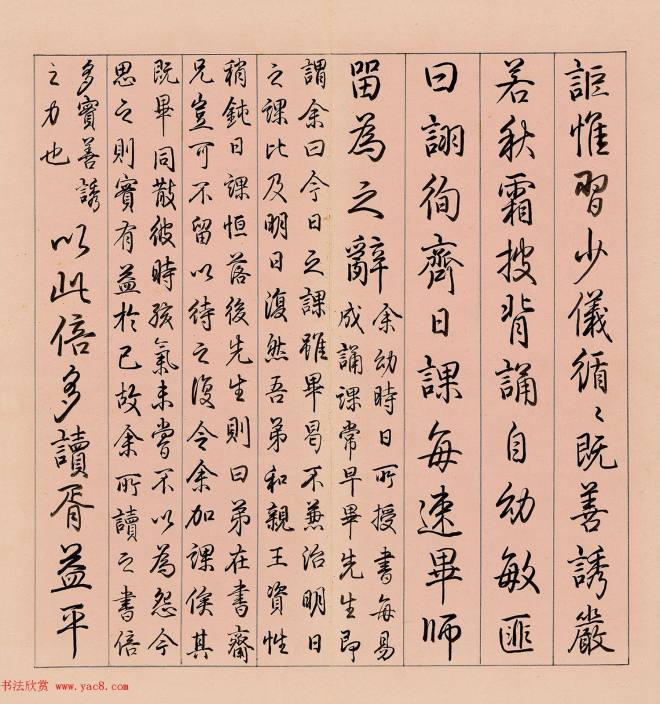 詎惟習少儀循〻既善誘嚴
若秋霜授背誦自幼敏匪
曰詡徇齊日課每速畢師
留為之辭
余幼時日所授書每易
成誦課常早畢先生即
謂余曰今日之課雖畢曷不兼治明日
之課比及明日復然吾弟和親王資性
稍鈍日課恒落後先生則曰弟在書齋
兄豈可不留以待之復令余加課俟其
既畢同散彼時孩氣未嘗不以為怨今
思之則實有益於已故余所讀之書倍
多實善誘
之力也
以此倍多讀胥益平
书法欣赏 www.yac8.com